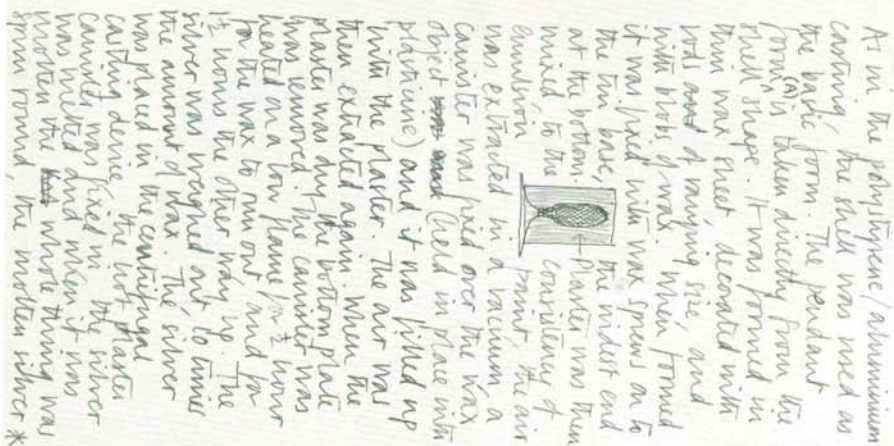 As in the polystyrene/aluminium
casting, the shell was used as
the basic form. The pendant
form (A) is taken directly from the
shell shape. It was formed in
thin wax sheet decorated with
rods and of varying size, and
with blobs of wax. When formed
it was fixed with wax sprews on to
the tin base, the widest end
at the bottom. Plaster was then
mixed to the consistency of
emulsion paint, the air
was extracted in a vacuum a
canister was fixed over the wax
object (held in place with
plasticine) and it was filled up
with the plaster. The air was
then extracted again. When the
plaster was dry the bottom plate
was removed. The canister was
heated on a low flame for ½ hour
for the wax to run out and for
1½ hours the other way up. The
silver was weighed out to
the amount of wax. The silver
was placed in the centrifugal
casting device, the hot plaster
canister was fixed in the silver
was melted and when it was
molten the whole thing was
spun round, the molten silver *